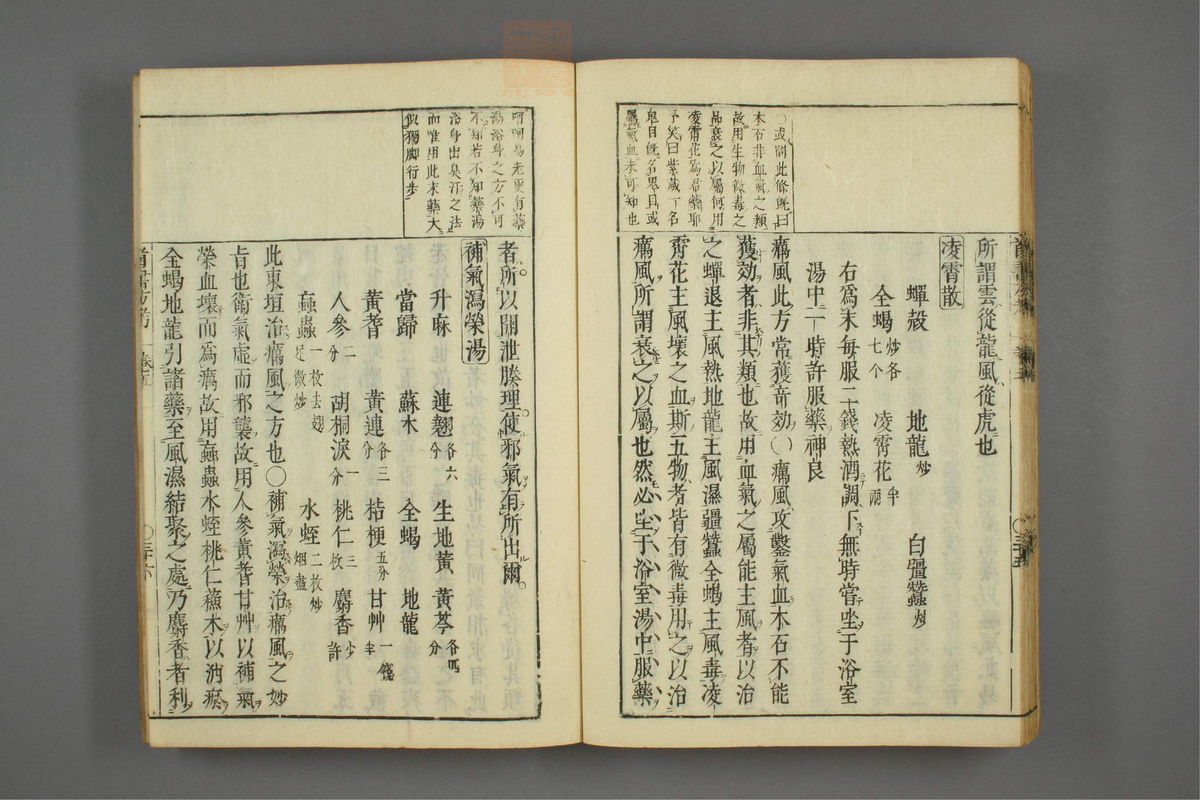 ○或問此條既曰
木石非血氣之類
故用生物微毒之
品衰之以屬何用
凌霄花爲君藥耶
予笑曰紫葳一名
鬼目既名鬼目或
屬氣血未可知也
所謂雲從龍風從虎也
凌霄散
蟬殼 地龍炒 白殭蠶炒
全蝎炒各七个 凌霄花半兩
右爲末每服二錢熱酒調下無時當坐于浴室
湯中一時許服藥神良
癘風此方常獲奇効○癘風攻鑿氣血木石不能
獲効者非其類也故用血氣之屬能主風者以治
之蟬退主風熱地龍主風濕殭蠶全蝎主風毒凌
霄花主風壞之血斯五物者皆有微毒用之以治
癘風所謂衰之以屬也然必坐于浴室湯中服藥
呵呵易老更有藥
湯浴身之方不可
不知若不知藥湯
浴身出臭汗之法
而唯用此末藥大
似獨脚行步
者所以開泄腠理使邪氣有所出爾
補氣瀉榮湯
升麻 連翹各六分 生地黃 黃芩各四分
當歸 蘇木 全蝎 地龍
黃耆 黃連各三分 桔梗五分 甘艸一錢半
人參二分 胡桐淚一分 桃仁三枚 麝香少許
蝱蟲一枚去翅足微炒 水蛭二枚炒烟盡
此東垣治癘風之方也○補氣瀉榮治癘風之妙
㫖也衛氣虛而邪襲故用人參黃耆甘艸以補氣
榮血壞而爲癘故用蝱蟲水蛭桃仁蘓木以消瘀
全蝎地龍引諸藥至風濕結聚之處乃麝香者利